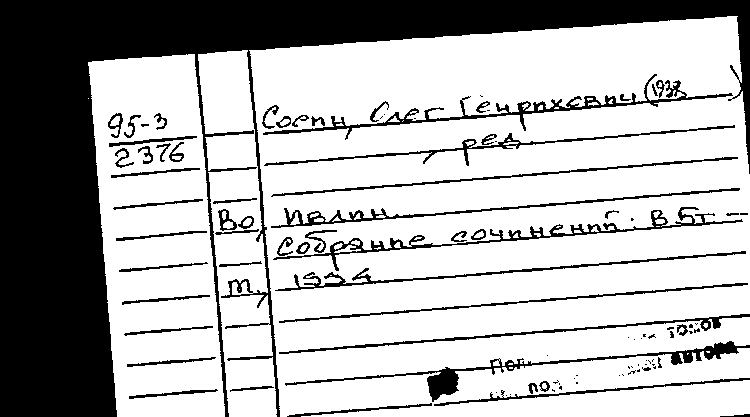 95-3
2376
Соепн, Олег Генрихович (1937
, ред.
Во, Ивлин.
Собрание сочинений: В 5т -
м., 1994
томов
под автора